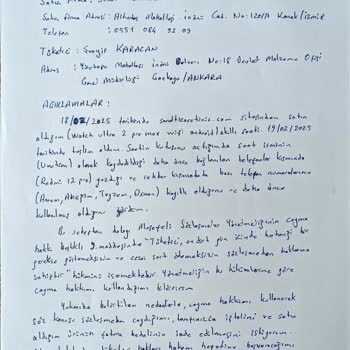 Satıcı Firma Adresi: Mahallesi İnönü Cad. No: 120/A Konak/İzmir
Telefon : 0551 084 32 09
Tüketici : KARACAN
Adres : Mahallesi İnönü Bulvarı No:18 Devlet Malzeme Ofisi
Genel Müdürlüğü Çankaya/ANKARA
AÇIKLAMALAR :
18/02/2025 tarihinde sitesinden satın
aldığım (Watch ultra 2 pro max wifi android) akıllı saati 19/02/2025
tarihinde teslim aldım. Saatin kutusunu açtığımda saat isminin
olarak kaydedildiği daha önce bağlanılan telefonlar kısmında
(Redmi 12 pro) yazdığı ve rehber kısmında bazı telefon numaralarının
(Annem, Ateşim, Teyzem, Osman) kayıtlı olduğunu ve daha önce
kullanılmış olduğunu gördüm.
Bu sebepten dolayı Mesafeli Sözleşmeler Yönetmeliğinin cayma
hakkı başlıklı 9. maddesinde "Tüketici, on dört gün içinde herhangi bir
gerekçe göstermeksizin ve cezai şart ödemeksizin sözleşmeden cayma hakkına
sahiptir" hükmünü içermektedir. Yönetmeliğin bu hükümlerine göre
cayma hakkımı kullandığımı bildiririm
Yukarıda belirtilen nedenlerle, cayma hakkımı kullanarak
söz konusu sözleşmeden caydığımı, iptalini ve satın
aldığım ürünün fatura bedelinin iade edilmesini istiyorum.